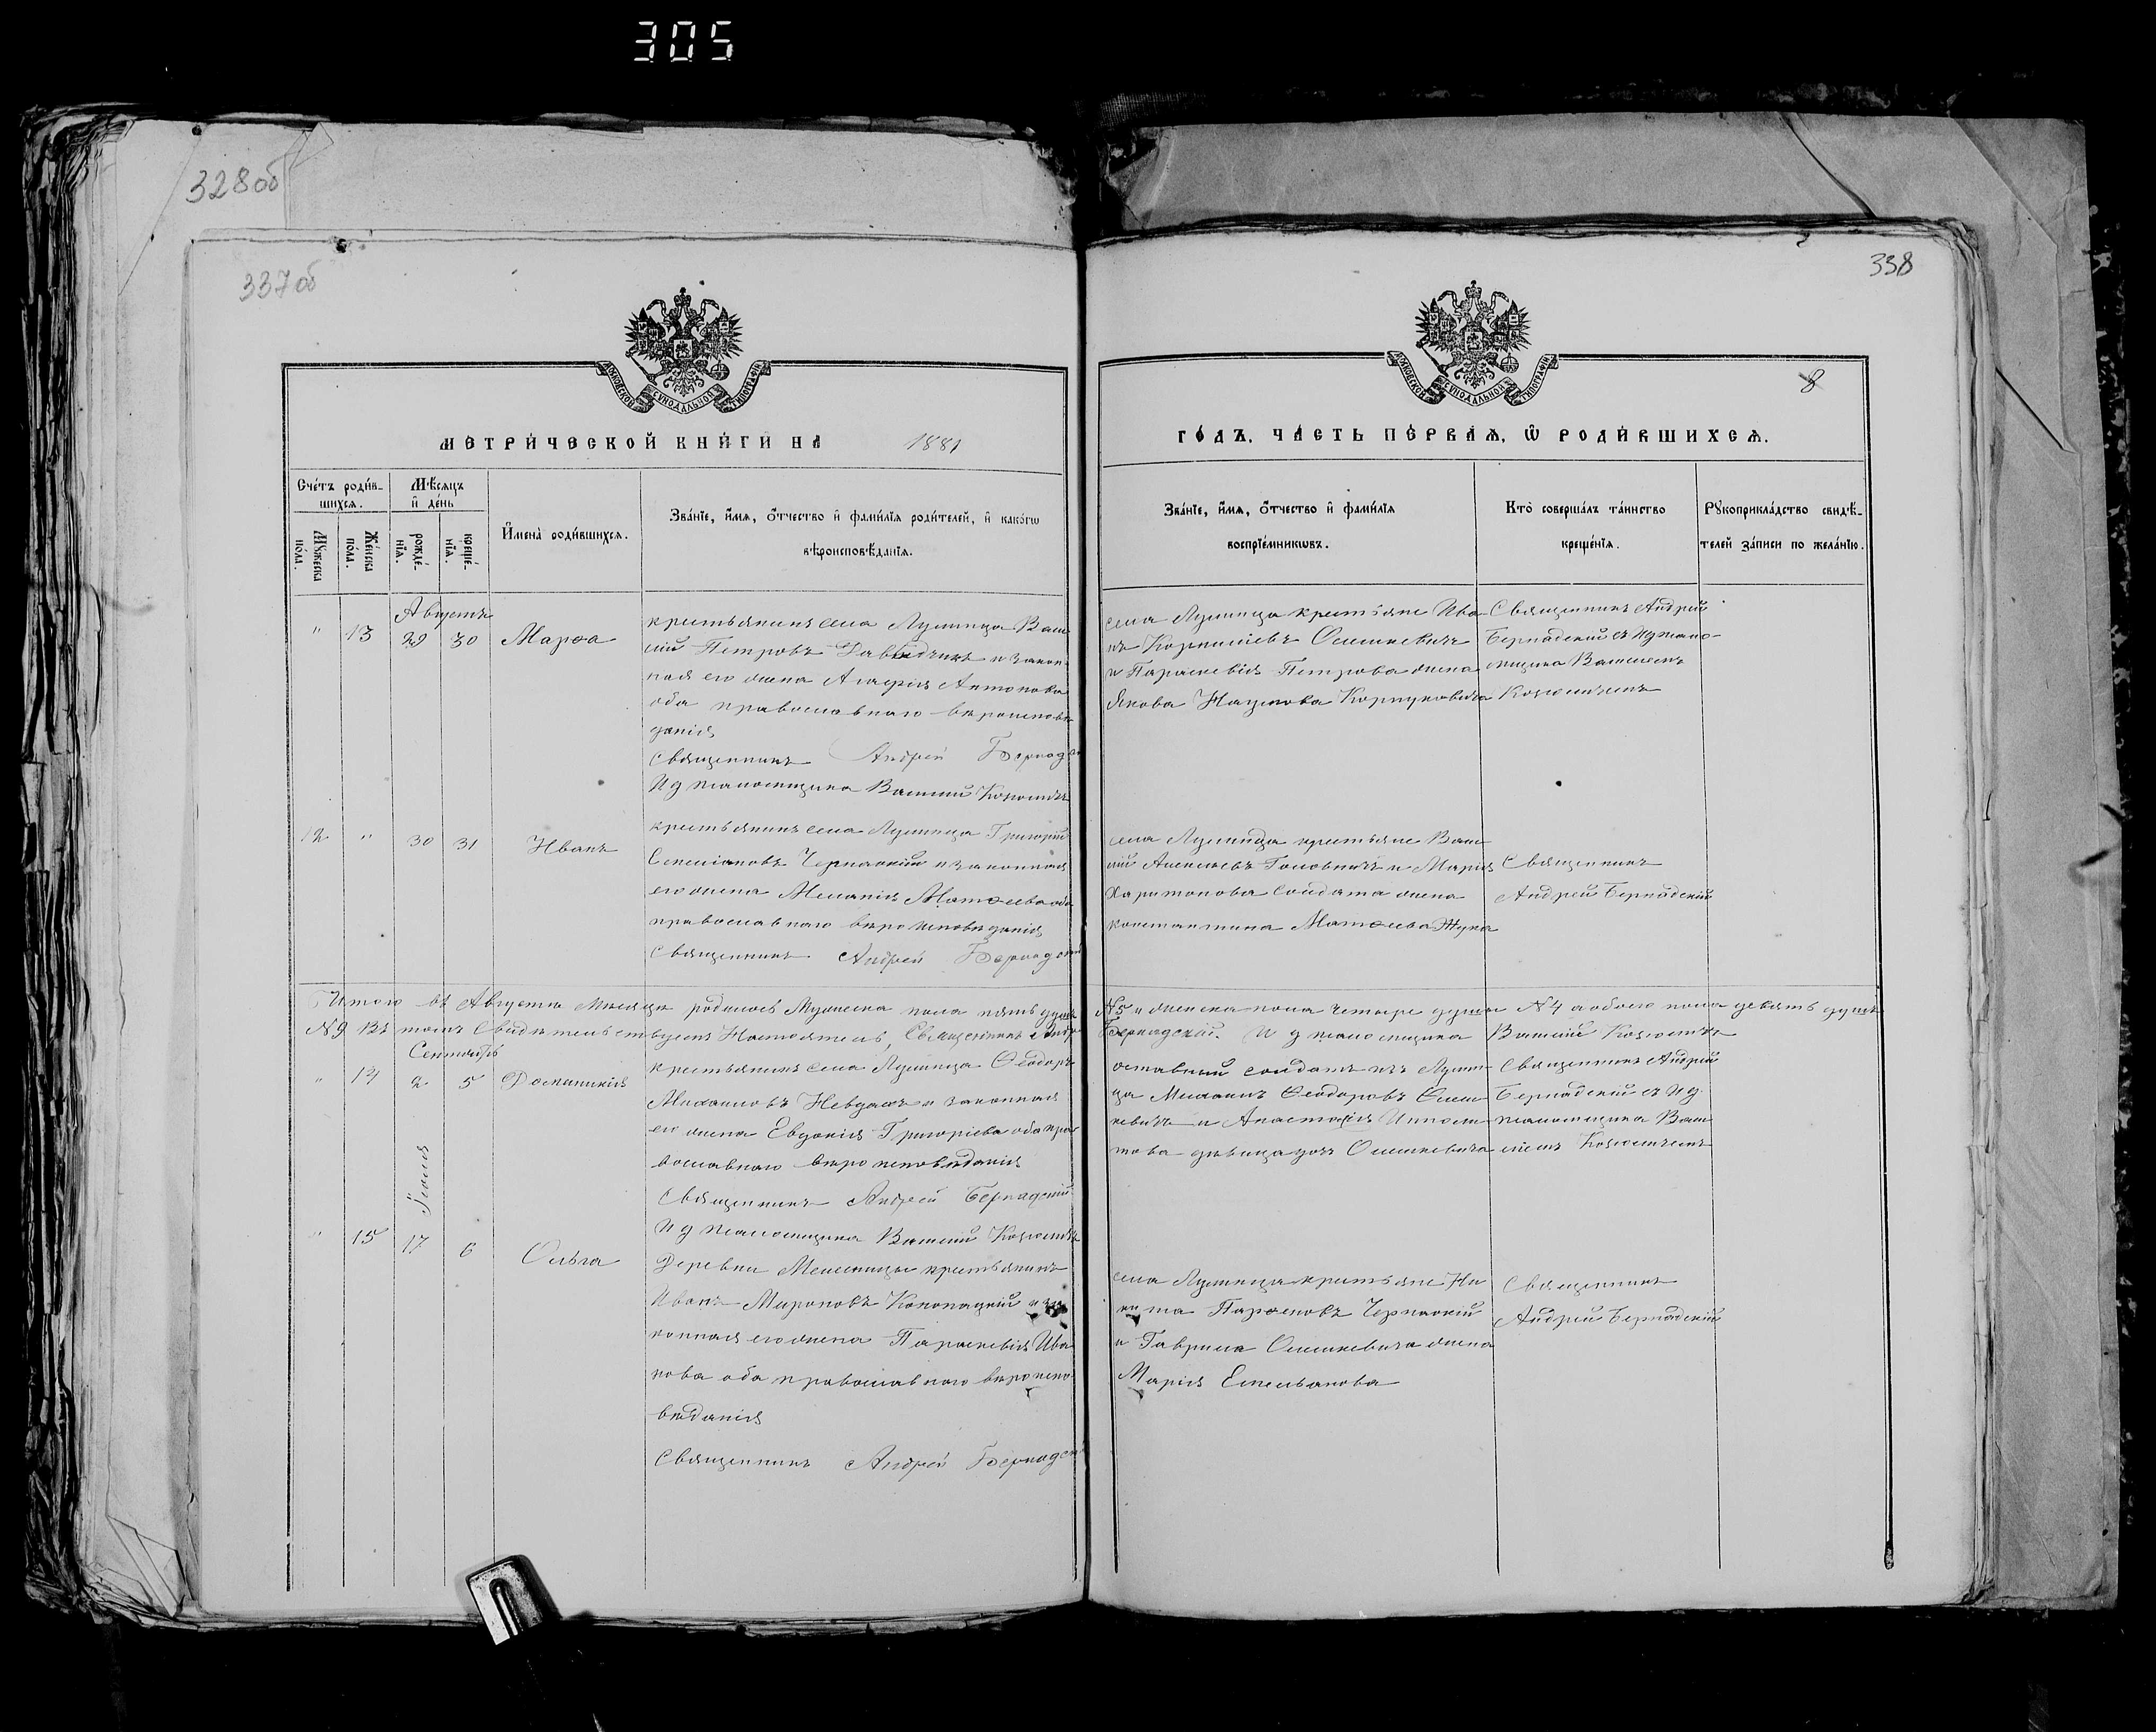 305
328об
337об
338
8
МОСКОВСКОЙ СѴНОДАЛЬНОЙ ТИПОГРАФІИ
МОСКОВСКОЙ СѴНОДАЛЬНОЙ ТИПОГРАФІИ
МЕТРИ́ЧЕСКОЙ КНИ́ГИ НА 1881
ГО́ДЪ, ЧА́СТЬ ПЕ́РВАЯ, Ѡ РОДИ́ВШИХСЯ.
Сче́тъ роди́в-
шихся.
Мѣ́сяцъ
и де́нь
Му́жеска
по́ла.
Же́нска
по́ла.
рожде́-
нїя.
креще́-
нїя.
Имена̀ роди́вшихся.
Зва́нїе, и́мя, о́тчество и фами́лїя роди́телей, и како́гѡ
вѣроисповѣ́данїя.
Зва́нїе, и́мя, о́тчество и фами́лїя
воспрїе́мникѡвъ.
Кто̀ соверша́лъ та́инство
креще́нїя.
Рꙋкоприкла́дство свидѣ́-
телей за́писи по жела́нїю.
Августъ
" 13 29 30 Марѳа
крестьянинъ села Лунинца Васи
лій Петровъ и закон
ная его жена Агафія Антонова
оба православнаго вѣроисповѣ
данія
Священникъ Андрей Бернадс
И д псаломщика Василій
села Лунинца крестьяне Ива
нъ Корнилievъ Олешкевичъ
и Параскевія Петрова жена
Якова Наумова Корнуковича
Священникъ Андрей
Бернадскій съ И д псало-
мщика Василіемъ
12 " 30 31 Иванъ
крестьянинъ села Лунинца Григорій
Чернаокій и законная
его жена Меланія Матѳеева оба
православнаго вѣроисповѣданія
Священникъ Андрей Бернадскій
села Лунинца крестьяне Васи
лій Алексѣевъ Головничъ и Марія
Харитонова солдата жена
Константина Матѳеева Жука
Священникъ
Андрей Бернадскій
Итого въ Августѣ мѣсяцѣ родилось Мужеска пола пять душъ N5 и женска пола четыре души N4 а обоего пола девять душъ
N9 Въ томъ Свидѣтельствуемъ Настоятель, Священникъ Андр Бернадскій. И д псаломщика Василій
Сентябрь
" 14 2 5 Домникія
крестьянинъ села Лунинца Ѳеодоръ
Михаиловъ Невдахъ и законная
его жена Евдокія Григоріева оба пра
вославнаго вѣроисповѣданія
Священникъ Андрей Бернадскій
И д псаломщика Василій
отставный солдатъ изъ Лунин
ца Михаилъ Ѳеодоровъ Олеш
кевичъ и Анастасія Ипполи
това дѣвица дочь Олешкевича
Священникъ Андрей
Бернадскій съ И д.
псаломщика Васи
ліемъ
" 15 17 6 Ольга
Деревни крестьянинъ
Иванъ Мироновъ Конопацкій и за
конная его жена Параскевія Ива
нова оба православнаго вѣроиспо
вѣданія
Священникъ Андрей Бернадскі
села Лунинца крестьяне Ни
кита Парѳеновъ Чернаокій
и Гавриила Олешкевича жена
Марія Емельянова
Священникъ
Андрей Бернадскій